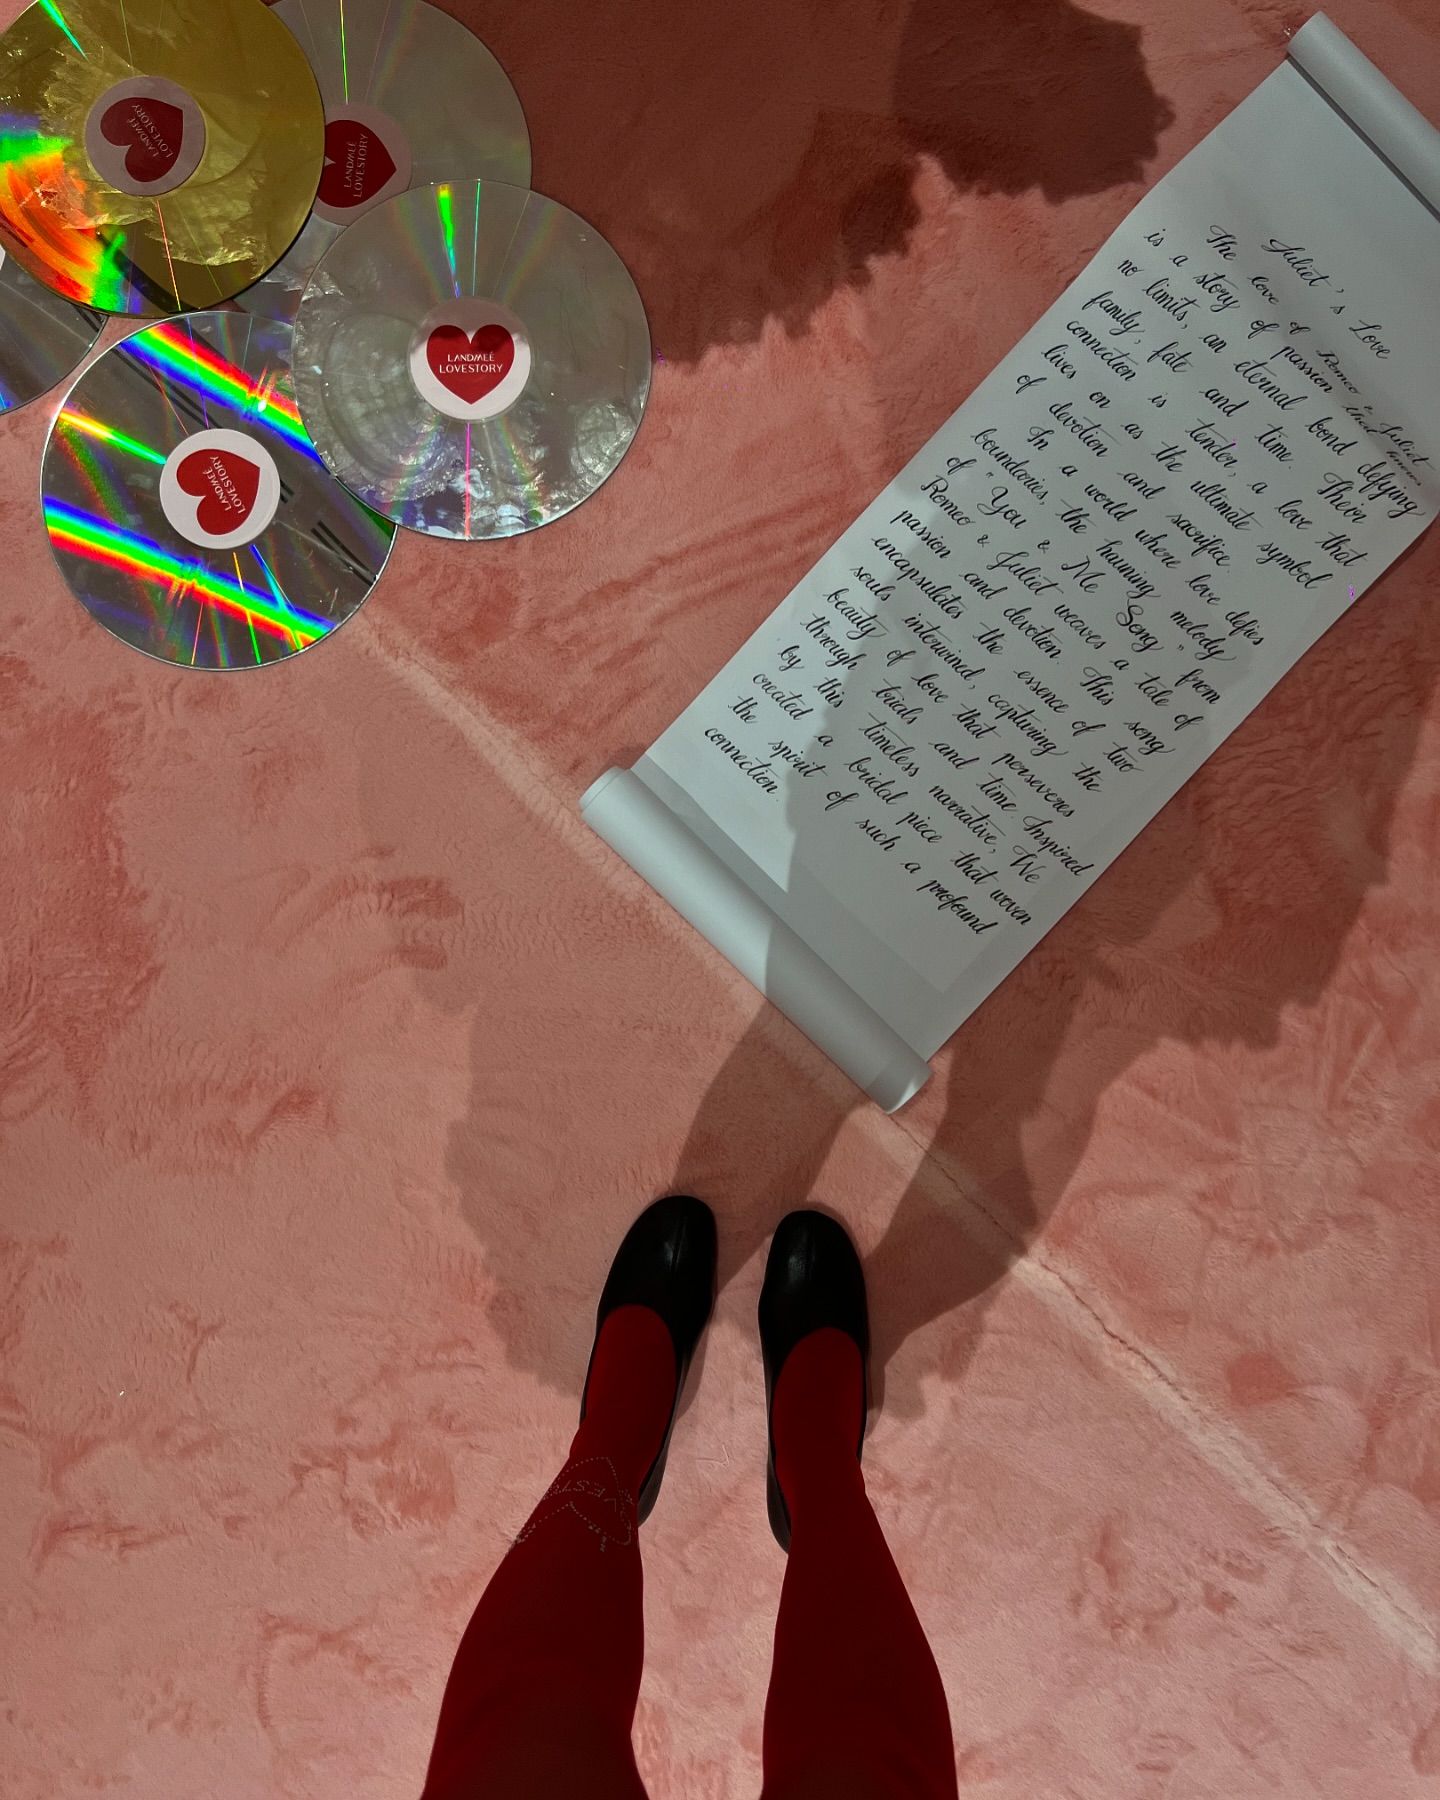 LANDMEÉ
LOVESTORY
LANDMEÉ
LOVESTORY
LANDMEÉ
LOVESTORY
LANDMEÉ
LOVESTORY
Juliet's Love
The love of Romeo & Juliet
is a story of passion that knows
no limits, an eternal bond defying
family, fate and time. Their
connection is tender, a love that
lives on as the ultimate symbol
of devotion and sacrifice.
In a world where love defies
boundaries, the hauning melody
of "You & Me Song" from
Romeo & Juliet weaves a tale of
passion and devotion. This song
encapsulates the essence of two
souls interwined, capturing the
beauty of love that perseveres
through trials and time. Inspired
by this timeless narrative, We
created a bridal piece that woven
the spirit of such a profound
connection.